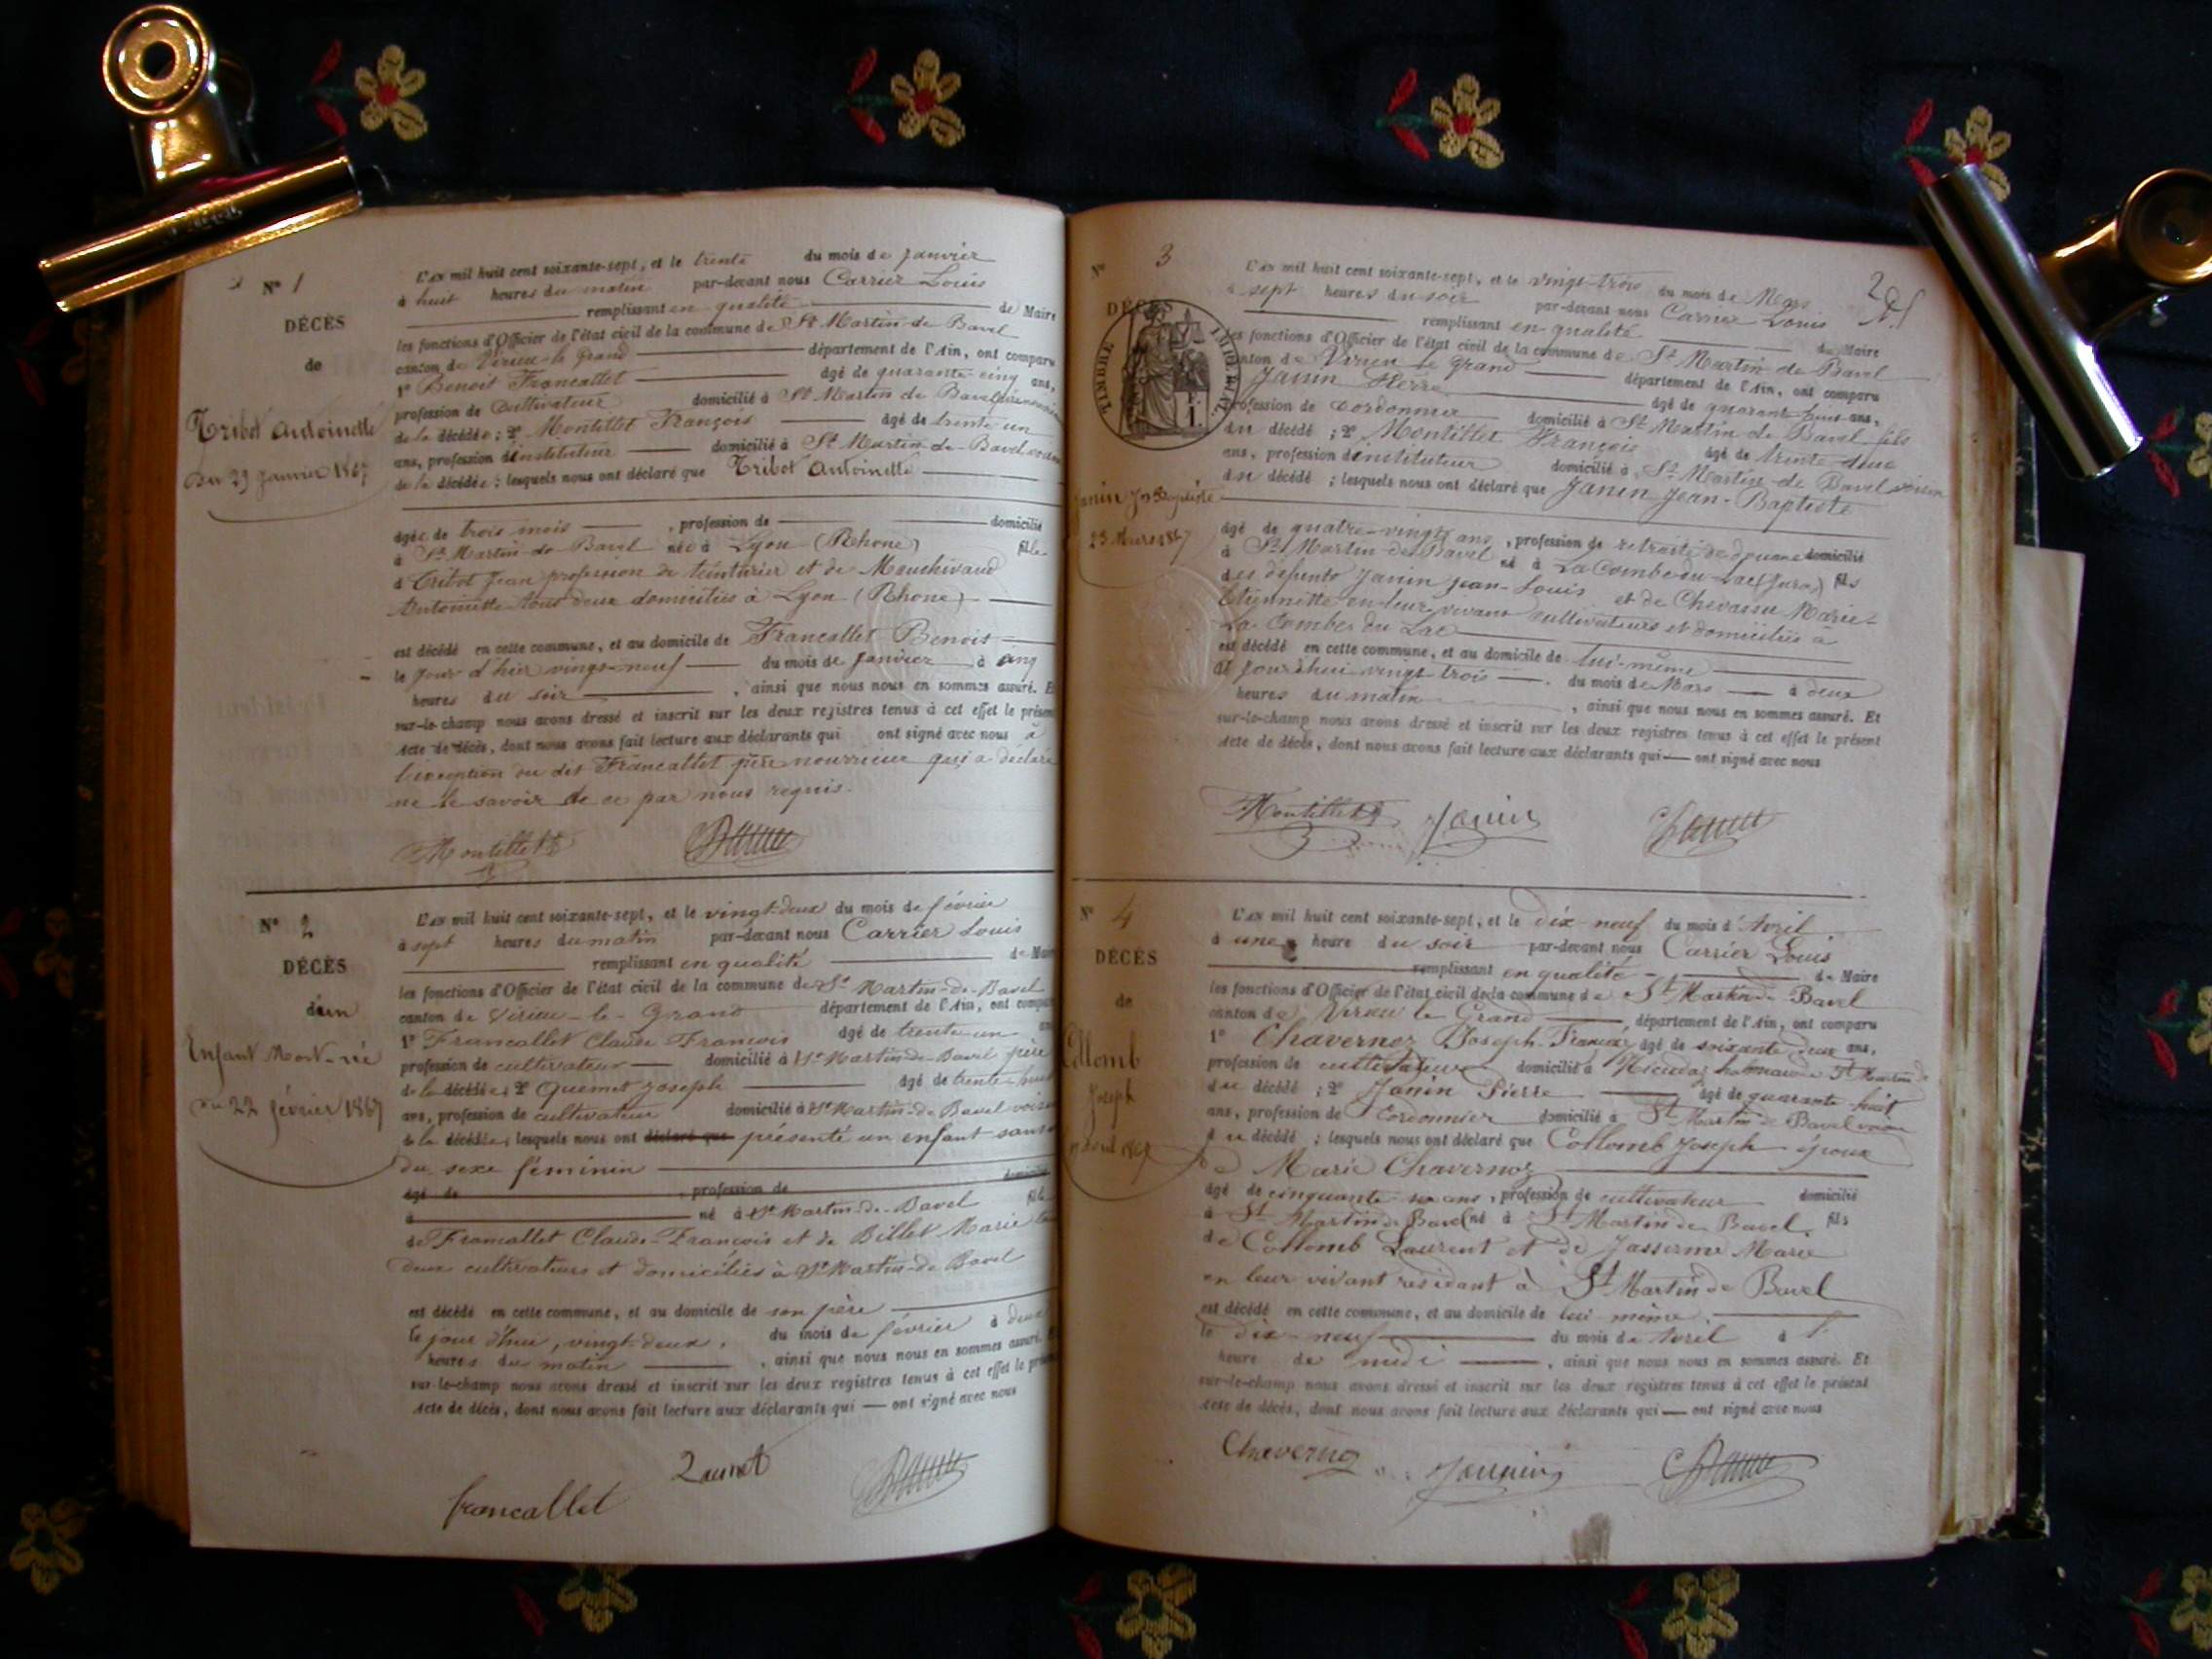 Nº 1
DÉCÈS
de
Tribot Antoinette
Du 29 Janvier 1867
L'AN mil huit cent soixante-sept, et le trente du mois de Janvier
à huit heures du matin par-devant nous Carrier Louis
remplissant en qualité de Maire
les fonctions d'Officier de l'état civil de la commune de St Martin de Bavel
canton de Virieu-le-Grand département de l'Ain, ont comparu
1º Benoit Francallet âgé de quarante cinq ans,
profession de Cultivateur domicilié à St Martin de Bavel
de la décédée ; 2º Montillet François âgé de trente un
ans, profession d'instituteur domicilié à St Martin-de-Bavel voisin
de la décédée ; lesquels nous ont déclaré que Tribot Antoinette
âgée de trois mois , profession de domicilié
à St Martin-de-Bavel née à Lyon (Rhone) fille
d Tribot Jean profession de teinturier et de
Antoinette tous deux domiciliés à Lyon (Rhone)
est décédé en cette commune, et au domicile de Francallet Benoit
le jour d'hier vingt-neuf du mois de Janvier à cinq
heures du soir , ainsi que nous nous en sommes assuré. Et
sur-le-champ nous avons dressé et inscrit sur les deux registres tenus à cet effet le présent
acte de décès, dont nous avons fait lecture aux déclarants qui ont signé avec nous à
l'exception du dit Francallet père nourricier qui a déclaré
ne le savoir de ce par nous requis.
Montillet
Nº 2
DÉCÈS
d'un
Enfant Mort-né
du 22 février 1867
L'AN mil huit cent soixante-sept, et le vingt-deux du mois de février
à sept heures du matin par-devant nous Carrier Louis
remplissant en qualité de Maire
les fonctions d'Officier de l'état civil de la commune de St Martin-de-Bavel
canton de Virieu-le-Grand département de l'Ain, ont comparu
1º Francallet Claude François âgé de trente-un ans
profession de cultivateur domicilié à St Martin-de-Bavel père
de la décédée ; 2º Quemet Joseph âgé de trente-huit
ans, profession de cultivateur domicilié à St Martin-de-Bavel voisin
de la décédée ; lesquels nous ont déclaré que présenté un enfant sans
du sexe féminin
âgé de , profession de domicilié
à né à St Martin-de-Bavel fille
de Francallet Claude-François et de Billet Marie tous
deux cultivateurs et domiciliés à St Martin-de Bavel
est décédé en cette commune, et au domicile de son père
le jour d'hui, vingt-deux, du mois de février à deux
heures du matin , ainsi que nous nous en sommes assuré. Et
sur-le-champ nous avons dressé et inscrit sur les deux registres tenus à cet effet le présent
acte de décès, dont nous avons fait lecture aux déclarants qui ont signé avec nous
francallet
2
Nº 3
DÉCÈS
TIMBRE IMPERIAL
Janin Jn Baptiste
23 Mars 1867
L'AN mil huit cent soixante-sept, et le vingt-trois du mois de Mars
à sept heures du soir par-devant nous Carrier Louis
remplissant en qualité de Maire
les fonctions d'Officier de l'état civil de la commune de St Martin de Bavel
canton de Virieu le Grand département de l'Ain, ont comparu
Janin Pierre âgé de quarante huit ans,
profession de cordonnier domicilié à St Martin de Bavel fils
du décédé ; 2º Montillet François âgé de trente deux
ans, profession d'instituteur domicilié à St Martin-de Bavel voisin
du décédé ; lesquels nous ont déclaré que Janin Jean-Baptiste
âgé de quatre-vingts ans , profession de retraité de douane domicilié
à St Martin-de-Bavel né à La Combe du Lac (Jura) fils
des défunts Janin Jean-Louis et de Chevassu Marie-
Etiennette en leur vivant cultivateurs et domiciliés à
La Combe du Lac
est décédé en cette commune, et au domicile de lui-même
le jourd'hui vingt trois du mois de Mars à deux
heures du matin , ainsi que nous nous en sommes assuré. Et
sur-le-champ nous avons dressé et inscrit sur les deux registres tenus à cet effet le présent
acte de décès, dont nous avons fait lecture aux déclarants qui ont signé avec nous
Montillet Janin
Nº 4
DÉCÈS
de
Collomb
Joseph
19 avril 1867
L'AN mil huit cent soixante-sept, et le dix-neuf du mois d'Avril
à une heure du soir par-devant nous Carrier Louis
remplissant en qualité de Maire
les fonctions d'Officier de l'état civil de la commune de St Martin de Bavel
canton de Virieu le Grand , département de l'Ain, ont comparu
1º Chavernoz Joseph-François âgé de soixante deux ans,
profession de cultivateur domicilié à hameau de St Martin
du décédé ; 2º Janin Pierre âgé de quarante-huit
ans, profession de Cordonnier domicilié à St Martin de Bavel voisin
du décédé ; lesquels nous ont déclaré que Collomb Joseph époux
de Marie Chavernoz
âgé de cinquante ans , profession de cultivateur domicilié
à St Martin de Bavel né à St Martin de Bavel fils
de Collomb Laurent et de Marie
en leur vivant résidant à St Martin de Bavel
est décédé en cette commune, et au domicile de lui même
le dix-neuf du mois de Avril à
heure de midi , ainsi que nous nous en sommes assuré. Et
sur-le-champ nous avons dressé et inscrit sur les deux registres tenus à cet effet le présent
acte de décès, dont nous avons fait lecture aux déclarants qui ont signé avec nous
Chavernoz